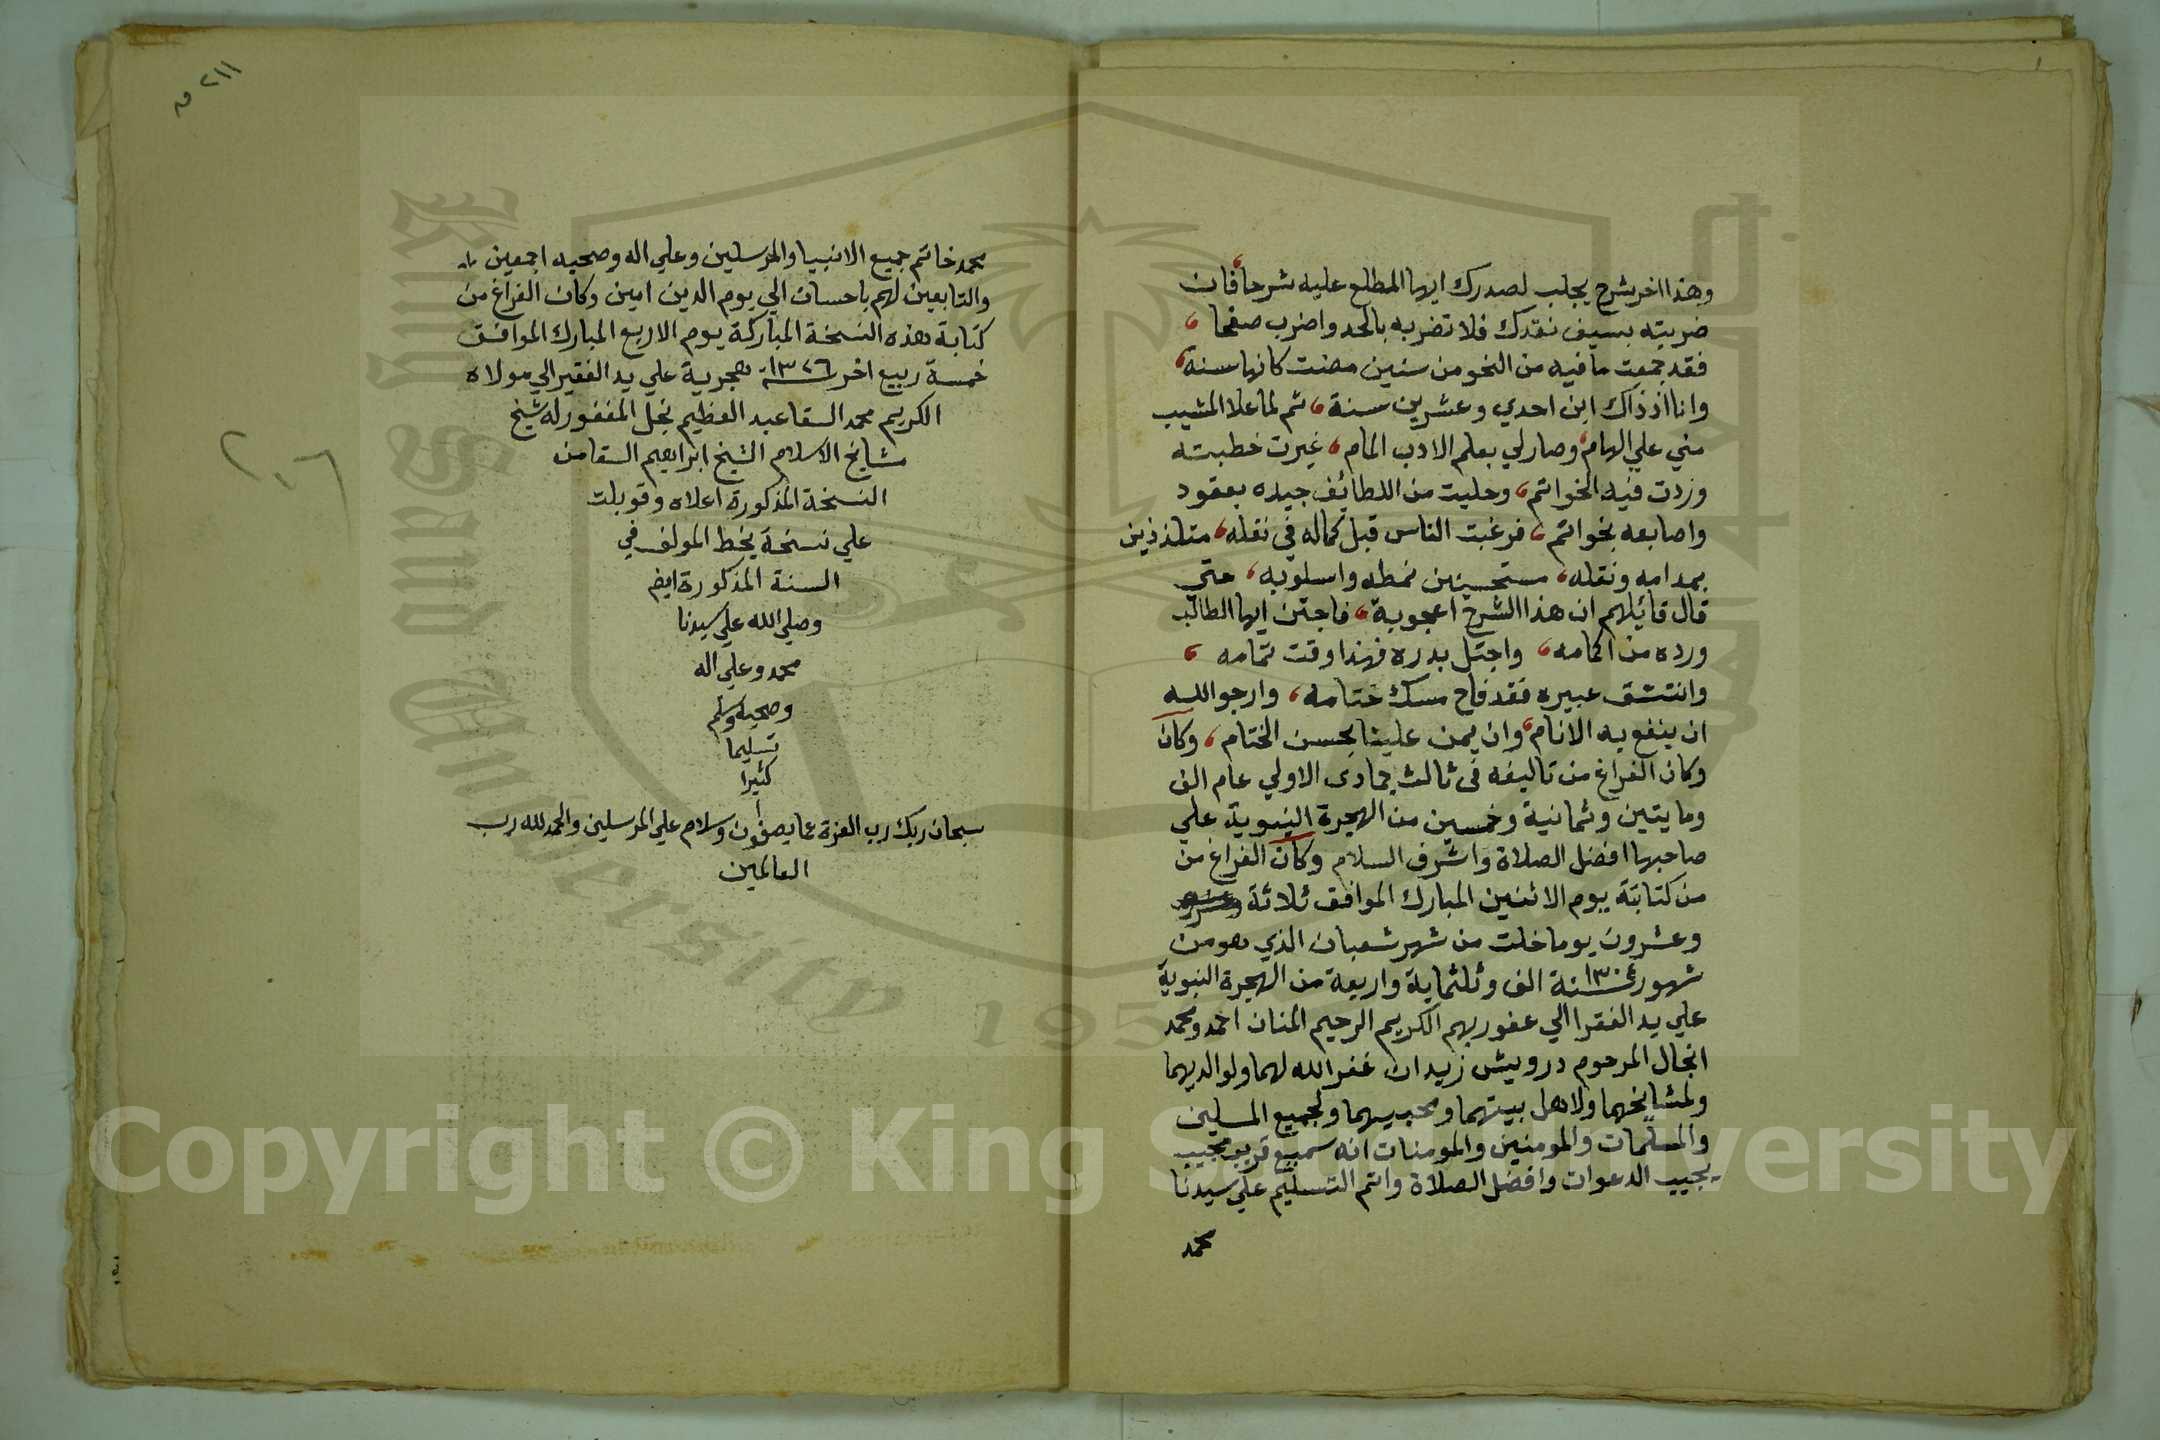 وهذا اخر شرح يجلب لصدرك ايها المطلع عليه شرحا، فان
ضربته بسيف نقدك فلا تضربه بالحد واضرب صفحا،
فقد جمعت ما فيه من النحو من سنين مضت كانها سنة،
وانا اذ ذاك ابن احدي وعشرين سنة، ثم لما علا المشيب
مني علي الهام، وصار لي بعلم الادب المام، غيرت خطبته
وزدت فيه الخواتم، وحليت من اللطائف جيده بعقود
واصابعه بخواتم، فرغبت الناس قبل كماله في نقله، متلذذين
بمدامه ونقله، مستحسنين نمطه واسلوبه، حتي
قال قائيلهم ان هذا الشرح اعجوبة، فاجتن ايها الطالب
ورده من اكمامه، واجتل بدره فهذا وقت تمامه،
وانتشق عبيره فقد فاح مسك ختامه، وارجو الله
ان ينفع به الانام، وان يمن علينا بحسن الختام، وكان
وكان الفراغ من تاليفه في ثالث جمادى الاولي عام الف
ومايتين وثمانية وخمسين من الهجرة النبوية علي
صاحبها افضل الصلاة واشرف السلام وكان الفراغ من
من كتابتة يوم الاثنين المبارك الموافق ثلاثة
وعشرون يوما خلت من شهر شعبان الذي هو من
شهور ١٣٠٤ سنة الف وثلثماية واربعة من الهجرة النبوية
علي يد الفقرا الي عفو ربهم الكريم الرحيم المنان احمد ومحمد
انجال المرحوم درويش زيدان غفر الله لهما ولوالديهما
ولمشايخهما ولاهل بيتهما ومحبيهما ولجميع المسلين
والمسلمات والمومنين والمومنات انه سميع قريب مجيب
يجيب الدعوات وافضل الصلاة واتم التسليم علي سيدنا
محمد
٢١١ ق
محمد خاتم جميع الانبيا والمرسلين وعلي اله وصحبه اجمعين
والتابعين لهم باحسان الي يوم الدين امين وكان الفراغ من
كتابة هذه النسخة المباركة يوم الاربع المبارك الموافق
خمسة ربيع اخر ١٣٢٦ سنة هجرية علي يد الفقير الي مولاه
الكريم محمد السقا عبد العظيم نجل المغفور له شيخ
مشايخ الاسلام الشيخ ابراهيم السقا من
النسخة المذكورة اعلاه وقوبلت
علي نسخة بخط المولف في
السنة المذكورة ايض
وصلي الله علي سيدنا
محمد وعلي اله
وصحبه وسلم
تسليما
كثيرا
سبحان ربك رب العزة عما يصفون وسلام علي المرسلين والحمد لله رب
العالمين
٢٠٦
King Saud University
1957
Copyright © King Saud University